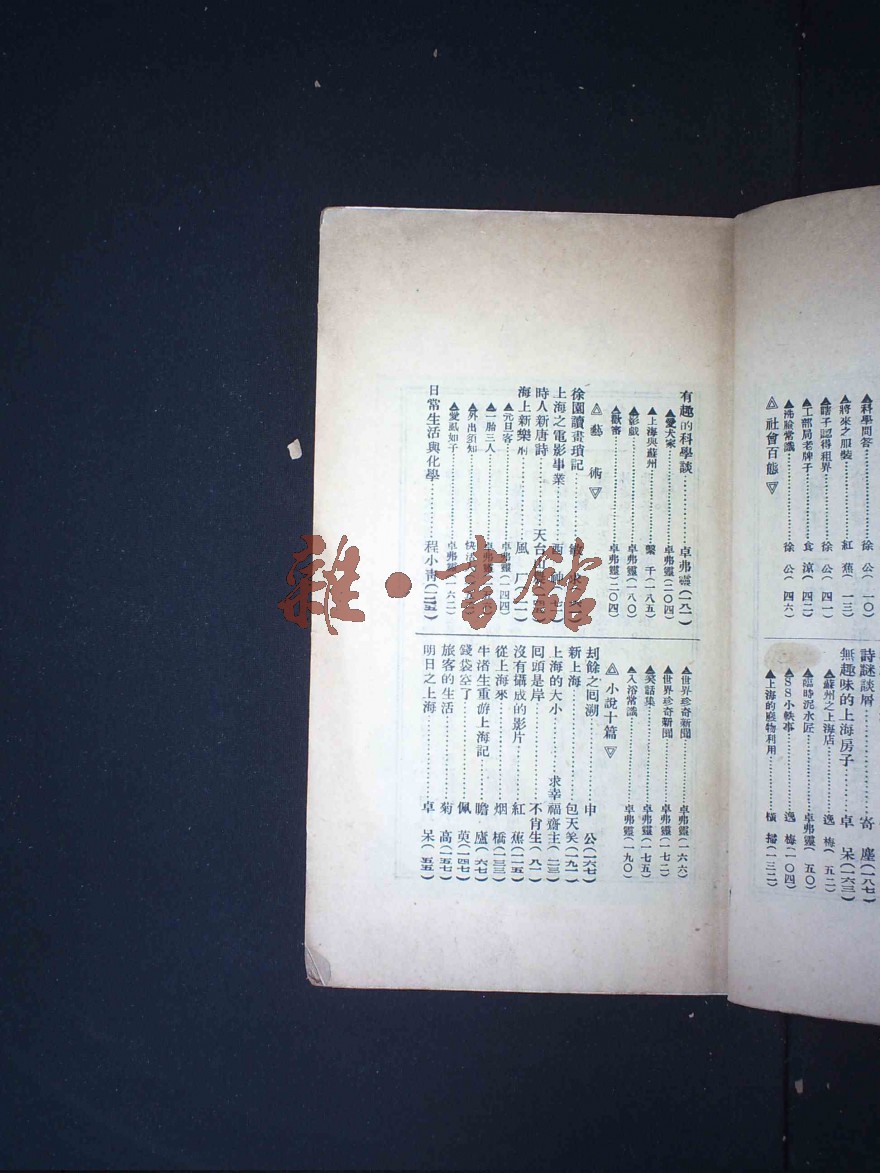 ▲科學問答………徐公(一〇)
▲將來之服裝………紅蕉(一三)
▲瞎子認得租界………徐公(四一)
▲工部局老牌子………食涼(四二)
▲洗臉常識………徐公(四六)
△社會百態▽
詩謎談屑………寄塵(一八七)
無趣味的上海房子………卓呆(一六三)
▲蘇州之上海店………逸梅(五二)
▲臨時泥水匠………卓弗靈(五〇)
▲SS小軼事………逸梅(一〇四)
▲上海的廢物利用………橫掃(一三二)
有趣的科學談………卓弗靈(一八一)
▲愛犬家………卓弗靈(二〇四)
▲上海與蘇州………繫千(一八五)
▲影戲………卓弗靈(一八〇)
▲獸審………卓弗靈(二〇四)
△藝術▽
徐園讀畫瑣記………
上海之電影事業………西神(七一)
時人新唐詩………天台山農
海上新樂府………風厂
▲元旦客………卓弗靈(一四四)
▲一胎三人………卓弗靈
▲外出須知………快活
▲愛虱如子………卓弗靈(一六二)
日常生活與化學………程小靑
▲世界珍奇新聞………卓弗靈(一六六)
▲世界珍奇新聞………卓弗靈(一七二)
▲笑話集………卓弗靈(一七五)
▲入浴常識………卓弗靈(一九〇)
△小說十篇▽
刦餘之囘溯………申公(一六七)
新上海………包天笑(一九一)
上海的大小………求幸福齋主(二三)
囘頭是岸………不肖生(八一)
沒有攝成的影片………紅蕉(一一五)
從上海來………烟橋(一三三)
牛渚生重游上海記………瞻廬(六七)
錢袋空了………佩萸(一四七)
旅客的生活………菊高(一五七)
明日之上海………卓呆(五五)
雜·書館